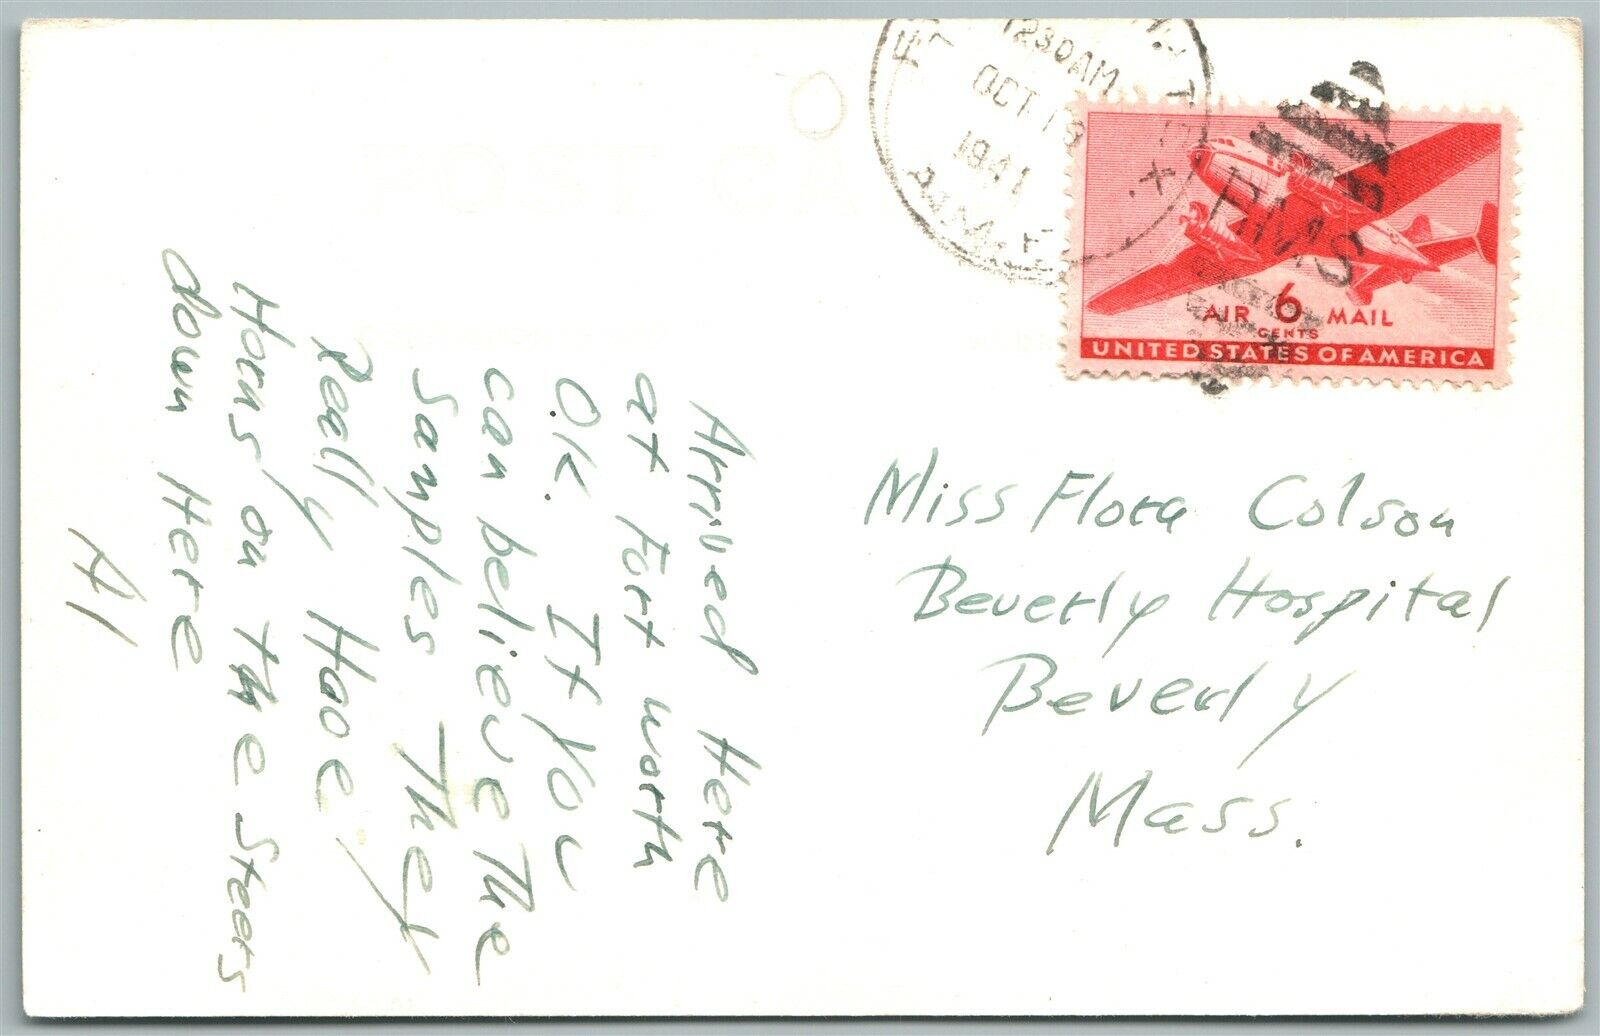 Arrived Here
at Fort Worth
O.K. If You
can believe The
Samples They
Really Have
Horns on the Steers
down Here
Al
POST CA
1230AM
OCT 18
1941
TEX.
AIR 6 MAIL
CENTS
UNITED STATES OF AMERICA
Miss Flora Colson
Beverly Hospital
Beverly
Mass.